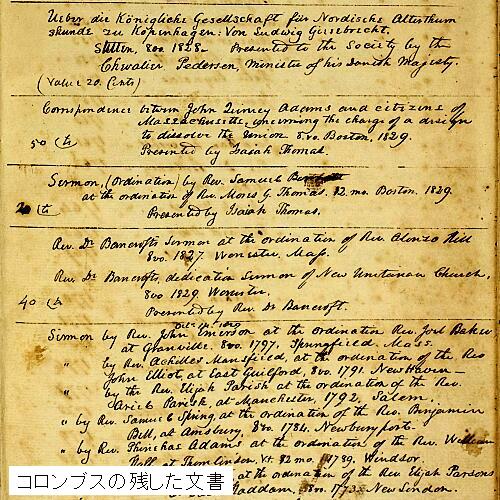 Ueber die Königliche Gesellschaft für Nordische Alterthum
skunde zu Kopenhagen: Von Ludwig Giesebrecht.
Stettin, 8vo. 1828. Presented to the Society by the
Chevalier Pedersen, Minister of his Danish Majesty.
(Value 20. Cents)
Correspondence between John Quincy Adams and citizens of
Massachusetts, concerning the charge of a design
to dissolve the Union 8vo. Boston, 1829.
50 Cts Presented by Isaiah Thomas.
Sermon, (Ordination) by Rev. Samuel
at the ordination of Rev. Moses G. Thomas. 12.mo. Boston. 1829.
20 Cts Presented by Isaiah Thomas.
Rev. Dr Bancrofts Sermon at the ordination of Rev. Alonzo Hill
8vo. 1827. Worcester, Mass.
Rev. Dr Bancrofts, dedication Sermon of New Unitarian Church,
8vo. 1829. Worcester.
40 Cts Presented by Rev. Dr Bancroft.
Sermon by Rev. John Emerson at the ordination Rev. Joel Baker
at Granville. 8vo. 1797. Springfield. Mass.
" by Rev. Achilles Mansfield, at the ordination of the Rev
John Elliot, at East Guilford, 8vo. 1791. New Haven—
" by the Rev. Elijah Parish at the ordination of the Rev.
Ariel Parish, at Manchester, 1792. Salem.
" by Rev. Samuel Spring, at the ordination of the Rev. Benjamin
Bell, at Amsbury 8vo. 1784. Newburyport.
" by Rev. Phinehas Adams at the ordination of the Rev. William
at Vt. 12mo. 1789. Windsor.
at the ordination of the Rev. Elijah Parsons
Haddam, 8vo. 1773. New London
コロンブスの残した文書